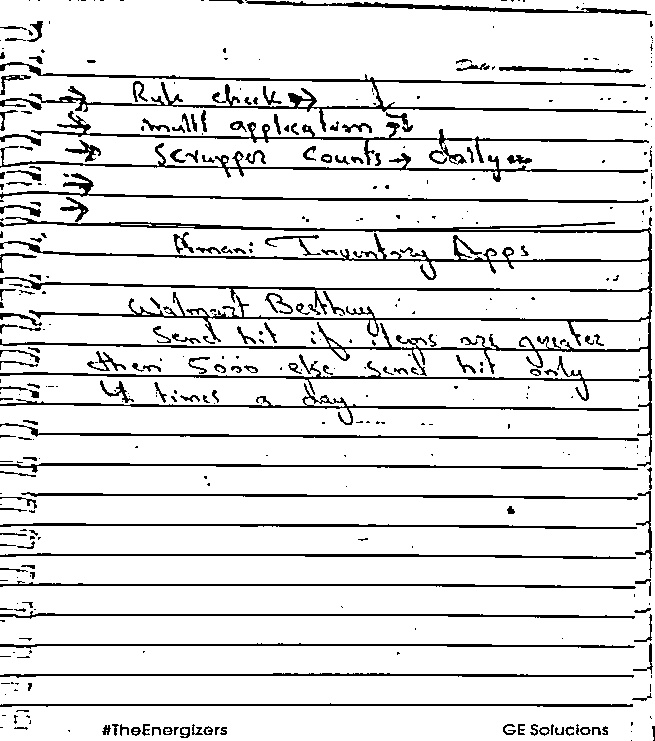 Date:
→ Rule check →
→ multi application
→ Scrapper Counts → daily
→
→
Armani Inventory Apps
Walmart Bestbuy
Send hit if items are greater
then 5000 else send hit only
4 times a day.
#TheEnergizers GE Solucions